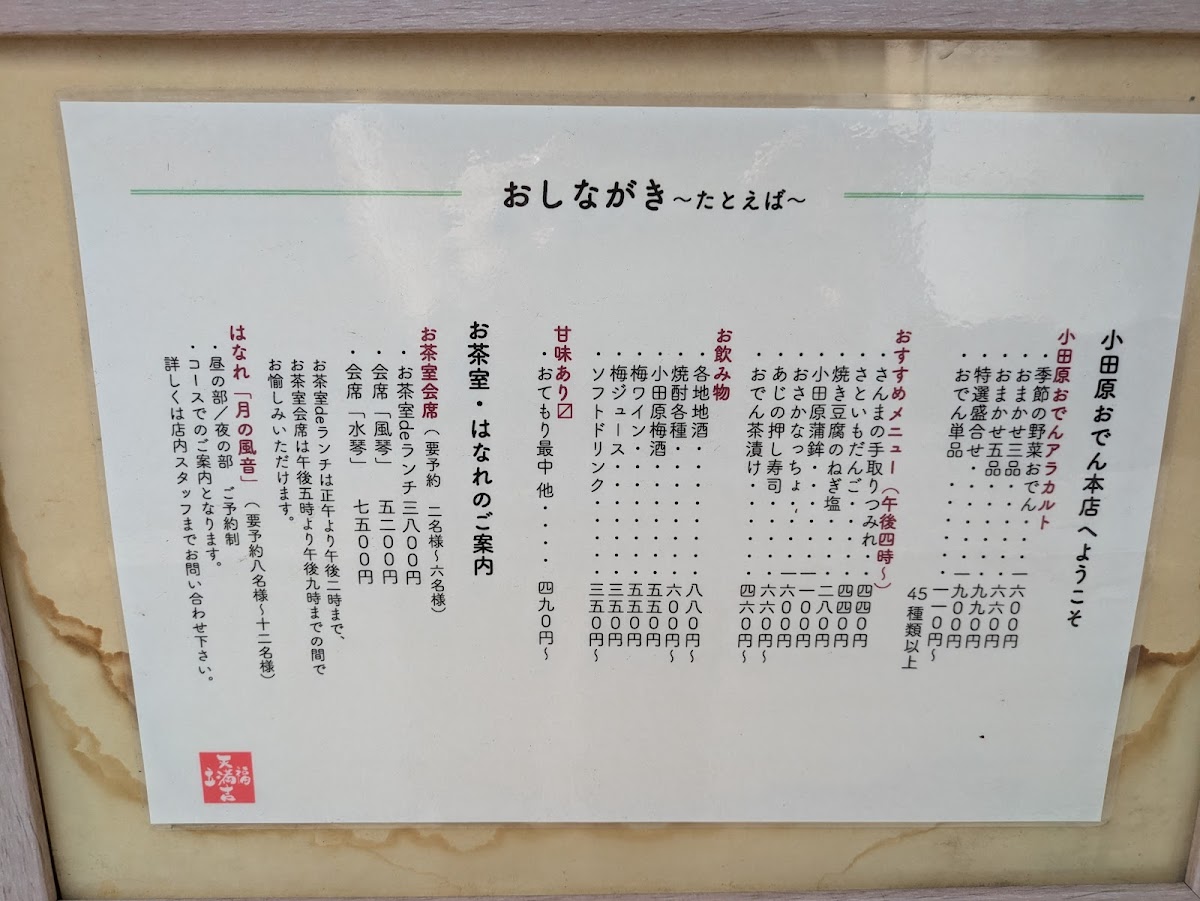 おしながき〜たとえば〜
小田原おでん本店へようこそ
小田原おでんアラカルト
・季節の野菜おでん・・一六〇〇円
・おまかせ三品・・・・・六六〇円
・おまかせ五品・・・・・九九〇円
・特選盛合せ・・・・・一九〇〇円
・おでん単品・・・・・・一一〇円〜
45種類以上
おすすめメニュー(午後四時〜)
・さんまの手取りつみれ・・四四〇円
・さといもだんご・・・・四四〇円
・焼き豆腐のねぎ塩・・・二八〇円
・小田原蒲鉾・・・・・・一〇〇円
・おさかなっちょ・・・一六〇〇円
・あじの押し寿司・・・・六六〇円〜
・おでん茶漬け・・・・・四六〇円〜
お飲み物
・各地地酒・・・・・・・八八〇円〜
・焼酎各種・・・・・・・六〇〇円〜
・小田原梅酒・・・・・・五五〇円
・梅ワイン・・・・・・・五五〇円
・梅ジュース・・・・・・三五〇円
・ソフトドリンク・・・・三五〇円〜
甘味あり〼
・おてもり最中 他・・・・四九〇円〜
お茶室・はなれのご案内
お茶室会席(要予約 二名様〜六名様)
・お茶室deランチ 三八〇〇円
・会席「風琴」 五二〇〇円
・会席「水琴」 七五〇〇円
お茶室deランチは正午より午後二時まで、
お茶室会席は午後五時より午後九時までの間で
お愉しみいただけます。
はなれ「月の風音」(要予約八名様〜十二名様)
・昼の部/夜の部 ご予約制
・コースでのご案内となります。
詳しくは店内スタッフまでお問い合わせ下さい。